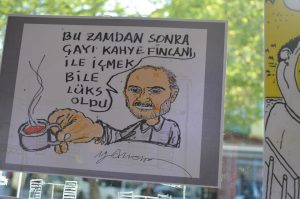 BU ZAMDAN SONRA
ÇAYI KAHVE FİNCANI,
İLE İÇMEK
BİLE
LÜKS
OLDU